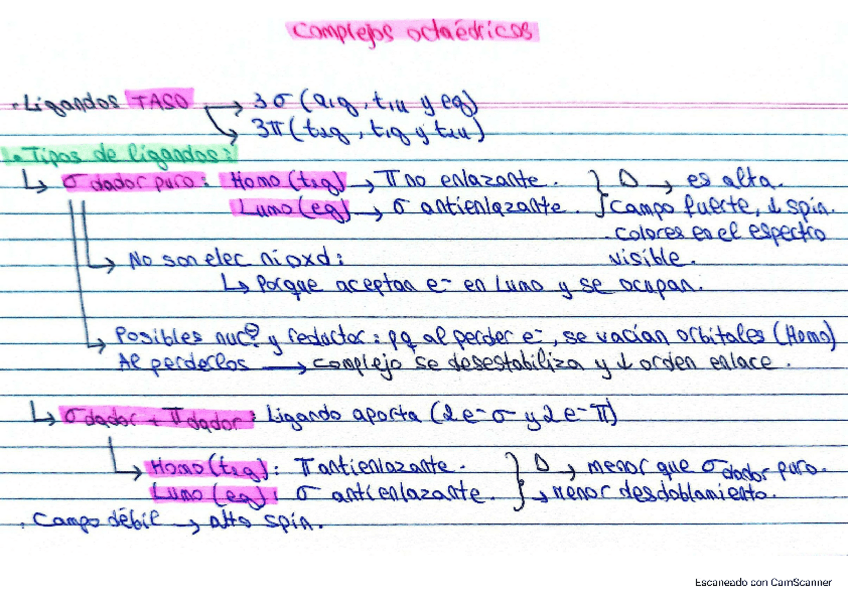 Complejos octaédricos
. Ligandos TASO → 3σ (a1g, t1u y eg)
→ 3π (t2g, t1g y t2u)
↳ Tipos de ligandos:
↳ σ dador puro: Homo (t2g) → π no enlazante. } Δ → es alta.
Lumo (eg) → σ antienlazante. } campo fuerte, ↓ spin.
. colores en el espectro
visible.
↳ No son elec ni oxd:
↳ Porque aceptan e- en Lumo y se ocupan.
↳ Posibles nuc⊖ y reductor: pq al perder e-, se vacían orbitales (Homo)
Al perderlos → complejo se desestabiliza y ↓ orden enlace.
↳ σ dador + π dador: Ligando aporta (2e- σ y 2e- π)
↳ Homo (t2g): π antienlazante. } Δ → menor que σ dador puro.
Lumo (eg): σ antienlazante. } ↳ menor desdoblamiento.
. Campo débil → alto spin.
Escaneado con CamScanner